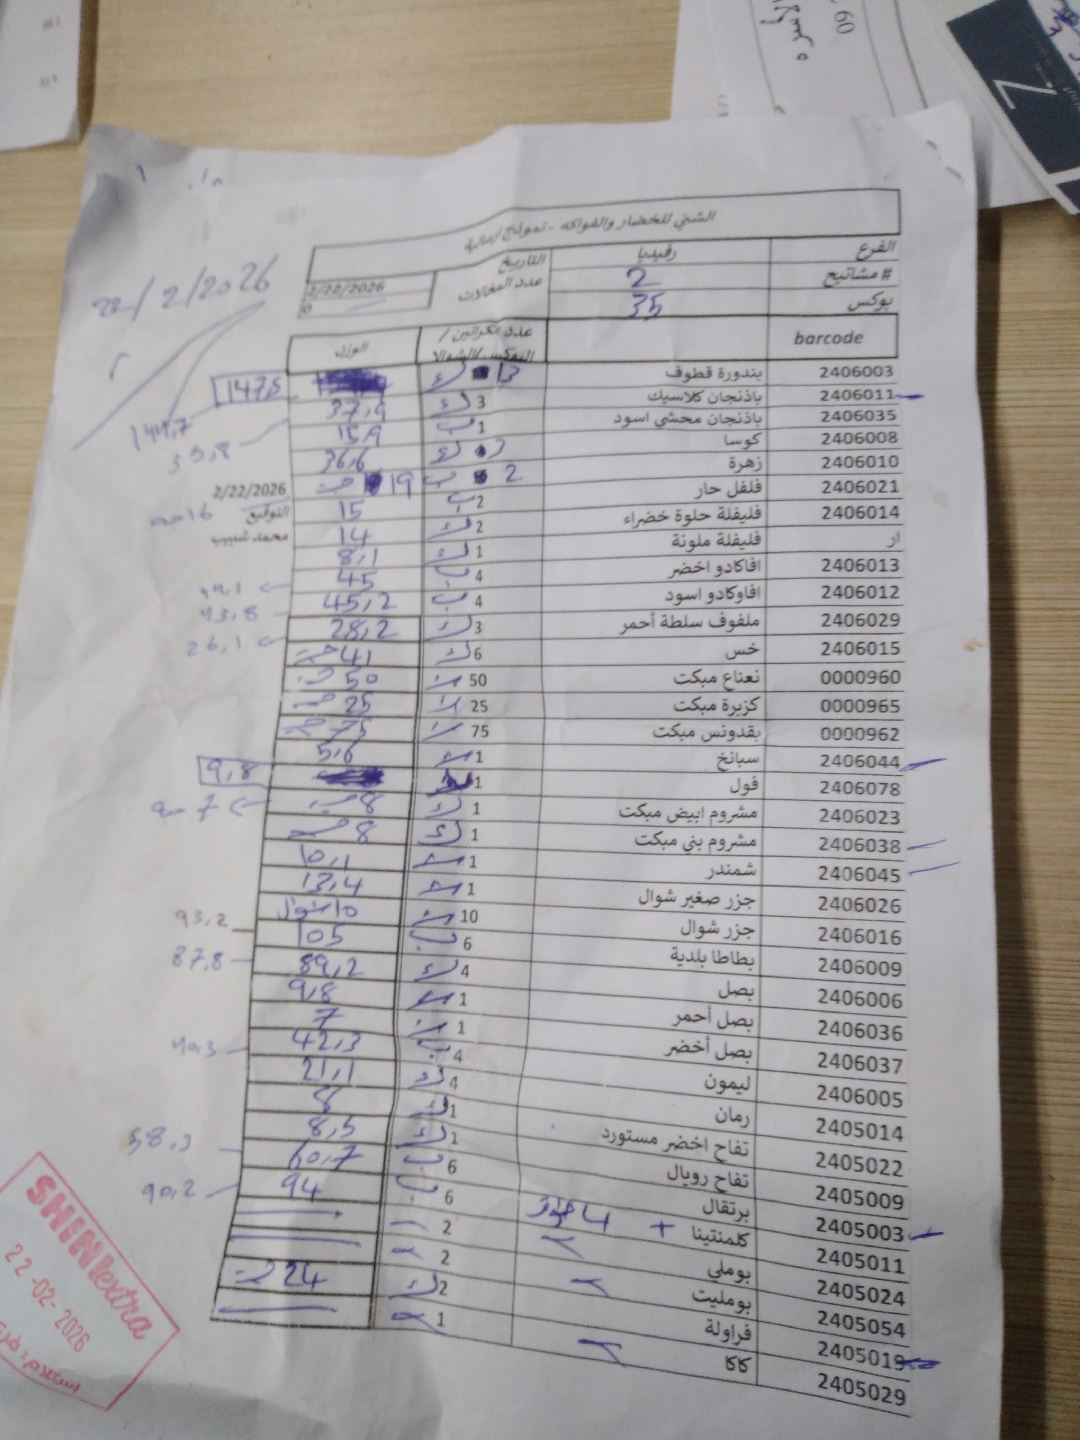 الأسره
09
22/2/2026
الشني للخضار والفواكه - نموذج ارسالية
الفرع رفيديا التاريخ 2/22/2026
# مشاتيح 2 عدد المغالات 0
بوكس 35
barcode عدد الكراتين / البوكس/الشوالا الوزن
2406003 بندورة قطوف 13 ك 147,5
144,7
2406011 باذنجان كلاسيك 3 ك 37,9
35,8
2406035 باذنجان محشي اسود 1 ب 15,9
2406008 كوسا 3 ك 36,6
2406010 زهرة 2 ب 19 حبة
2/22/2026
2406021 فلفل حار 2 ب 15
التوقيع 16 حبه
2406014 فليفلة حلوة خضراء 2 ك 14
محمد شبيب
ار فليفلة ملونة 1 ك 8,1
2406013 افاكادو اخضر 4 ب 45
44,1
2406012 افاوكادو اسود 4 ب 45,2
43,8
2406029 ملفوف سلطة أحمر 3 ك 28,2
26,1
2406015 خس 6 ك 41 حبة
0000960 نعناع مبكت 50 50 حبة
0000965 كزبرة مبكت 25 25 حبة
0000962 بقدونس مبكت 75 75 حبة
2406044 سبانخ 1 5,6
2406078 فول 1 9,8
2406023 مشروم ابيض مبكت 1 ك 8 حبة
7 حبه
2406038 مشروم بني مبكت 1 ك 8 حبة
2406045 شمندر 1 10,1
2406026 جزر صغير شوال 1 13,4
2406016 جزر شوال 10 10 شوال
2406009 بطاطا بلدية 6 ب 105
93,2
2406006 بصل 4 ك 89,2
87,8
2406036 بصل أحمر 1 9,8
2406037 بصل أخضر 1 7
2406005 ليمون 4 ب 42,3
40,3
2405014 رمان 4 ك 21,1
2405022 تفاح اخضر مستورد 1 ك 8
2405009 تفاح رويال 1 ك 8,5
2405003 برتقال 6 ب 60,7
58,3
2405011 كلمنتينا + 4 6 ب 94
90,2
2405024 بوملي 2
2405054 بومليت 2
2405019 فراولة 2 ك 24 حبة
2405029 كاكا 1
SHINI extra
22-02-2026
استلام: